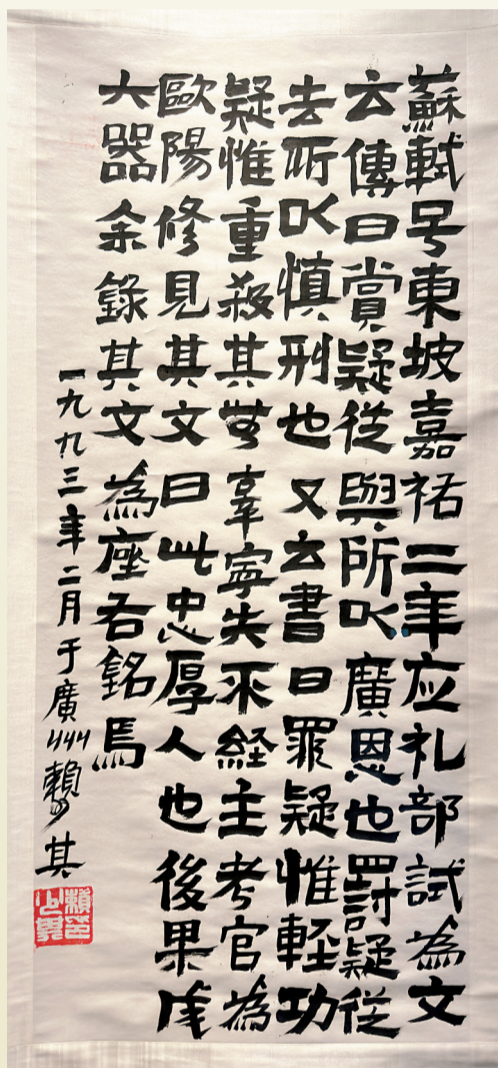 蘇軾号東坡嘉祐二年应礼部試為文
云傳曰賞疑從與所以廣恩也罰疑從
去所以慎刑也又云書曰罪疑惟輕功
疑惟重殺其無辜寧失不経主考官為
歐陽修見其文曰此忠厚人也後果成
大器余錄其文為座右銘焉
一九九三年二月于廣州賴少其